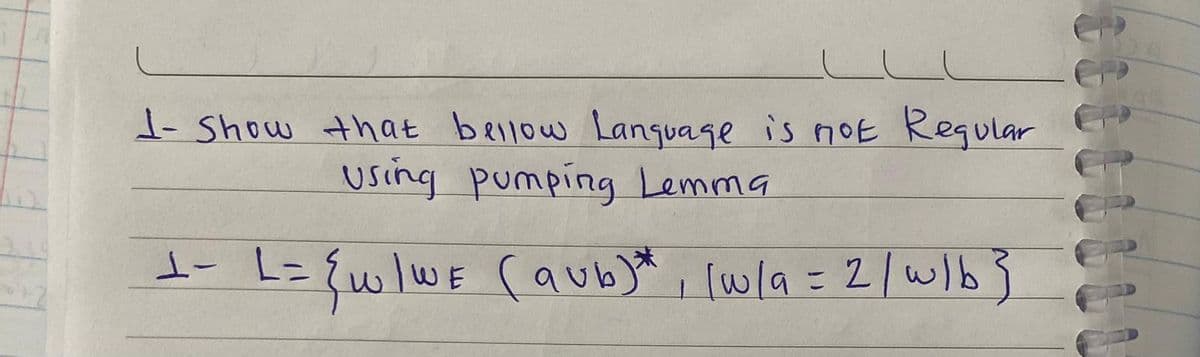 1- Show that bellow Language is not Regular
using pumping Lemma
1- L= {w|wE (aub)*, |w|a = 2|w|b}